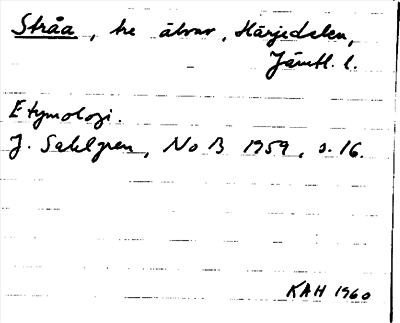 Stråa, tre älvar, Härjedalen,
Jämtl. l.
Etymologi.
J. Sahlgren, NoB 1959, s. 16.
KAH 1960